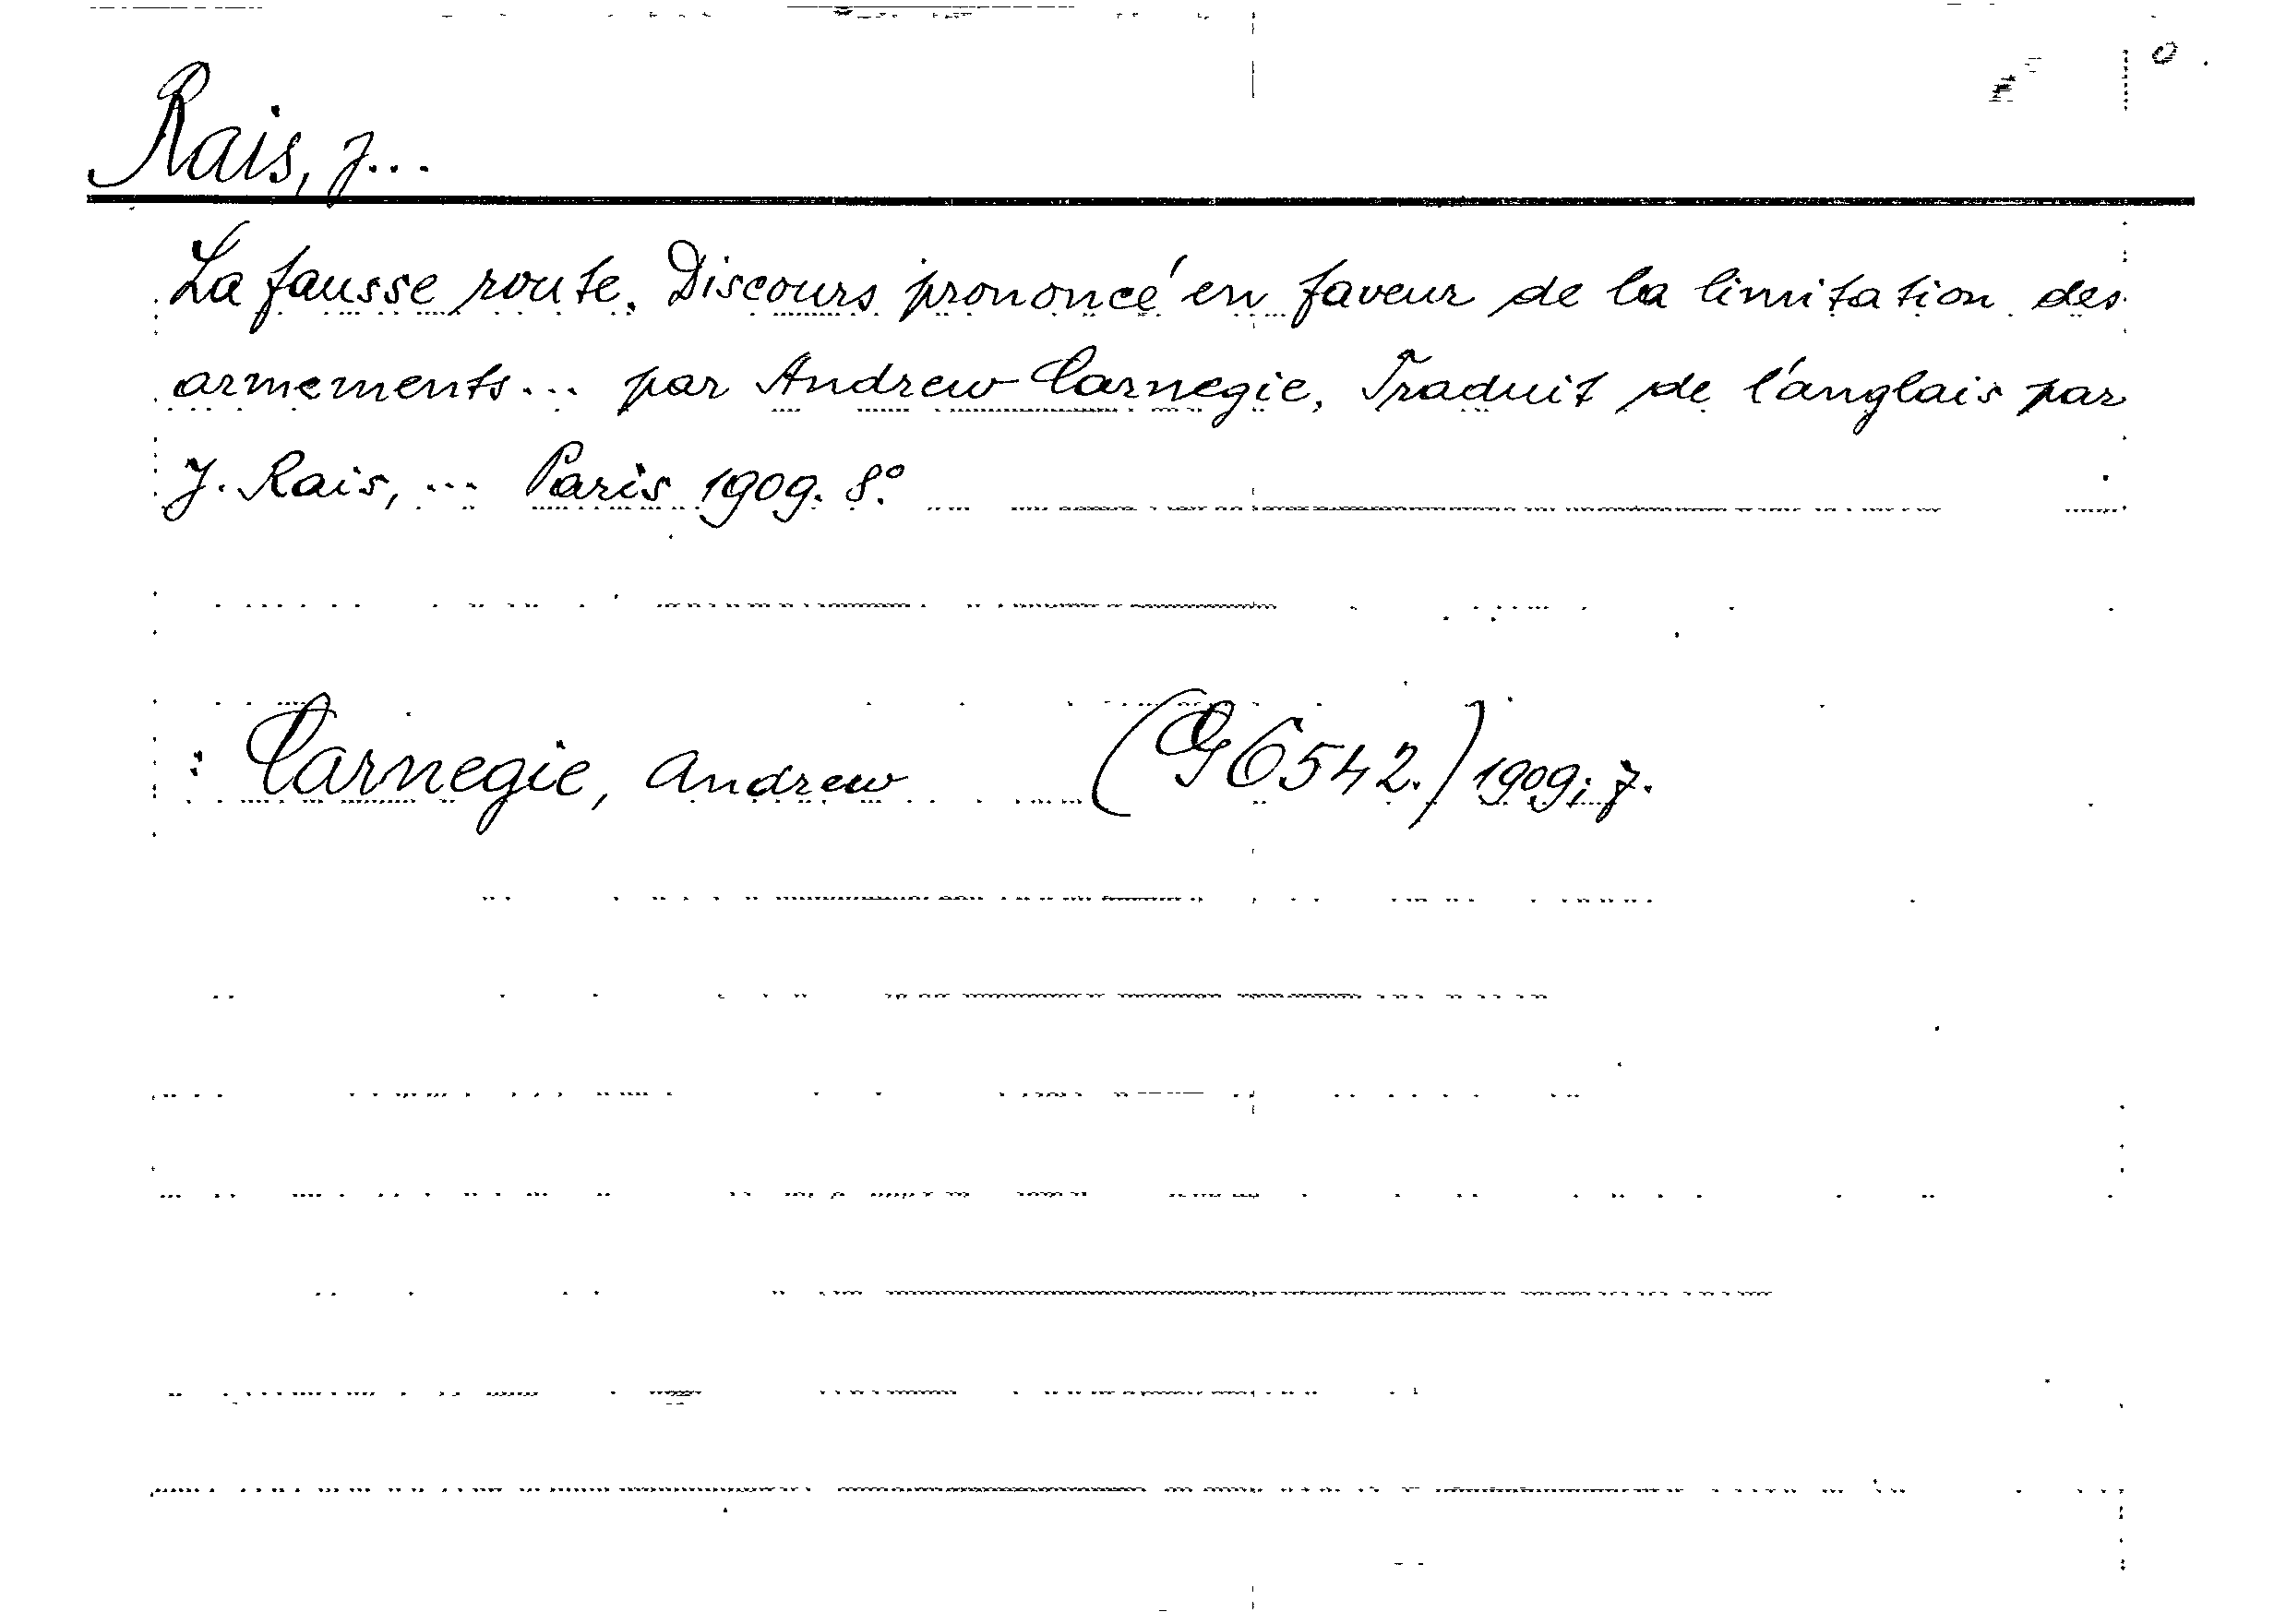 Rais, J...
La fausse route. Discours prononcé en faveur de la limitation des
armements... par Andrew Carnegie. Traduit de l'anglais par
J. Rais, ... Paris 1909. 8:o
: Carnegie, Andrew (G 6542.) 1909; 7.